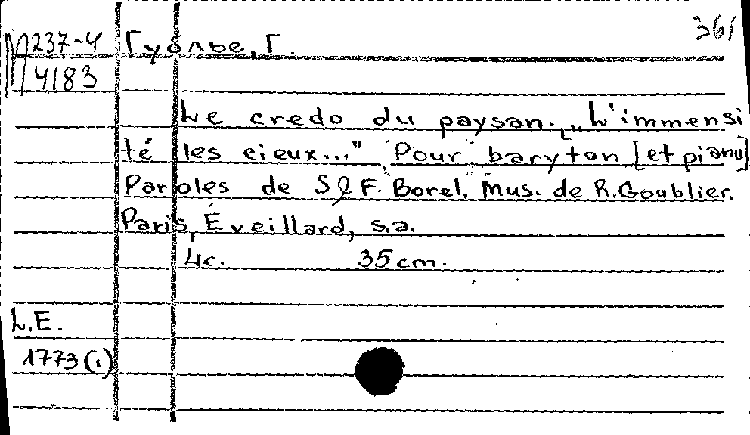 361
М237-4 Гублье, Г.
4183
Le credo du paysan. „L'immensi
té les cieux..." Pour baryton [et piano]
Paroles de S & F. Borel. Mus. de R. Goublier.
Paris, Eveillard, s.a.
4c. 35 cm.
L.E.
1773(1)